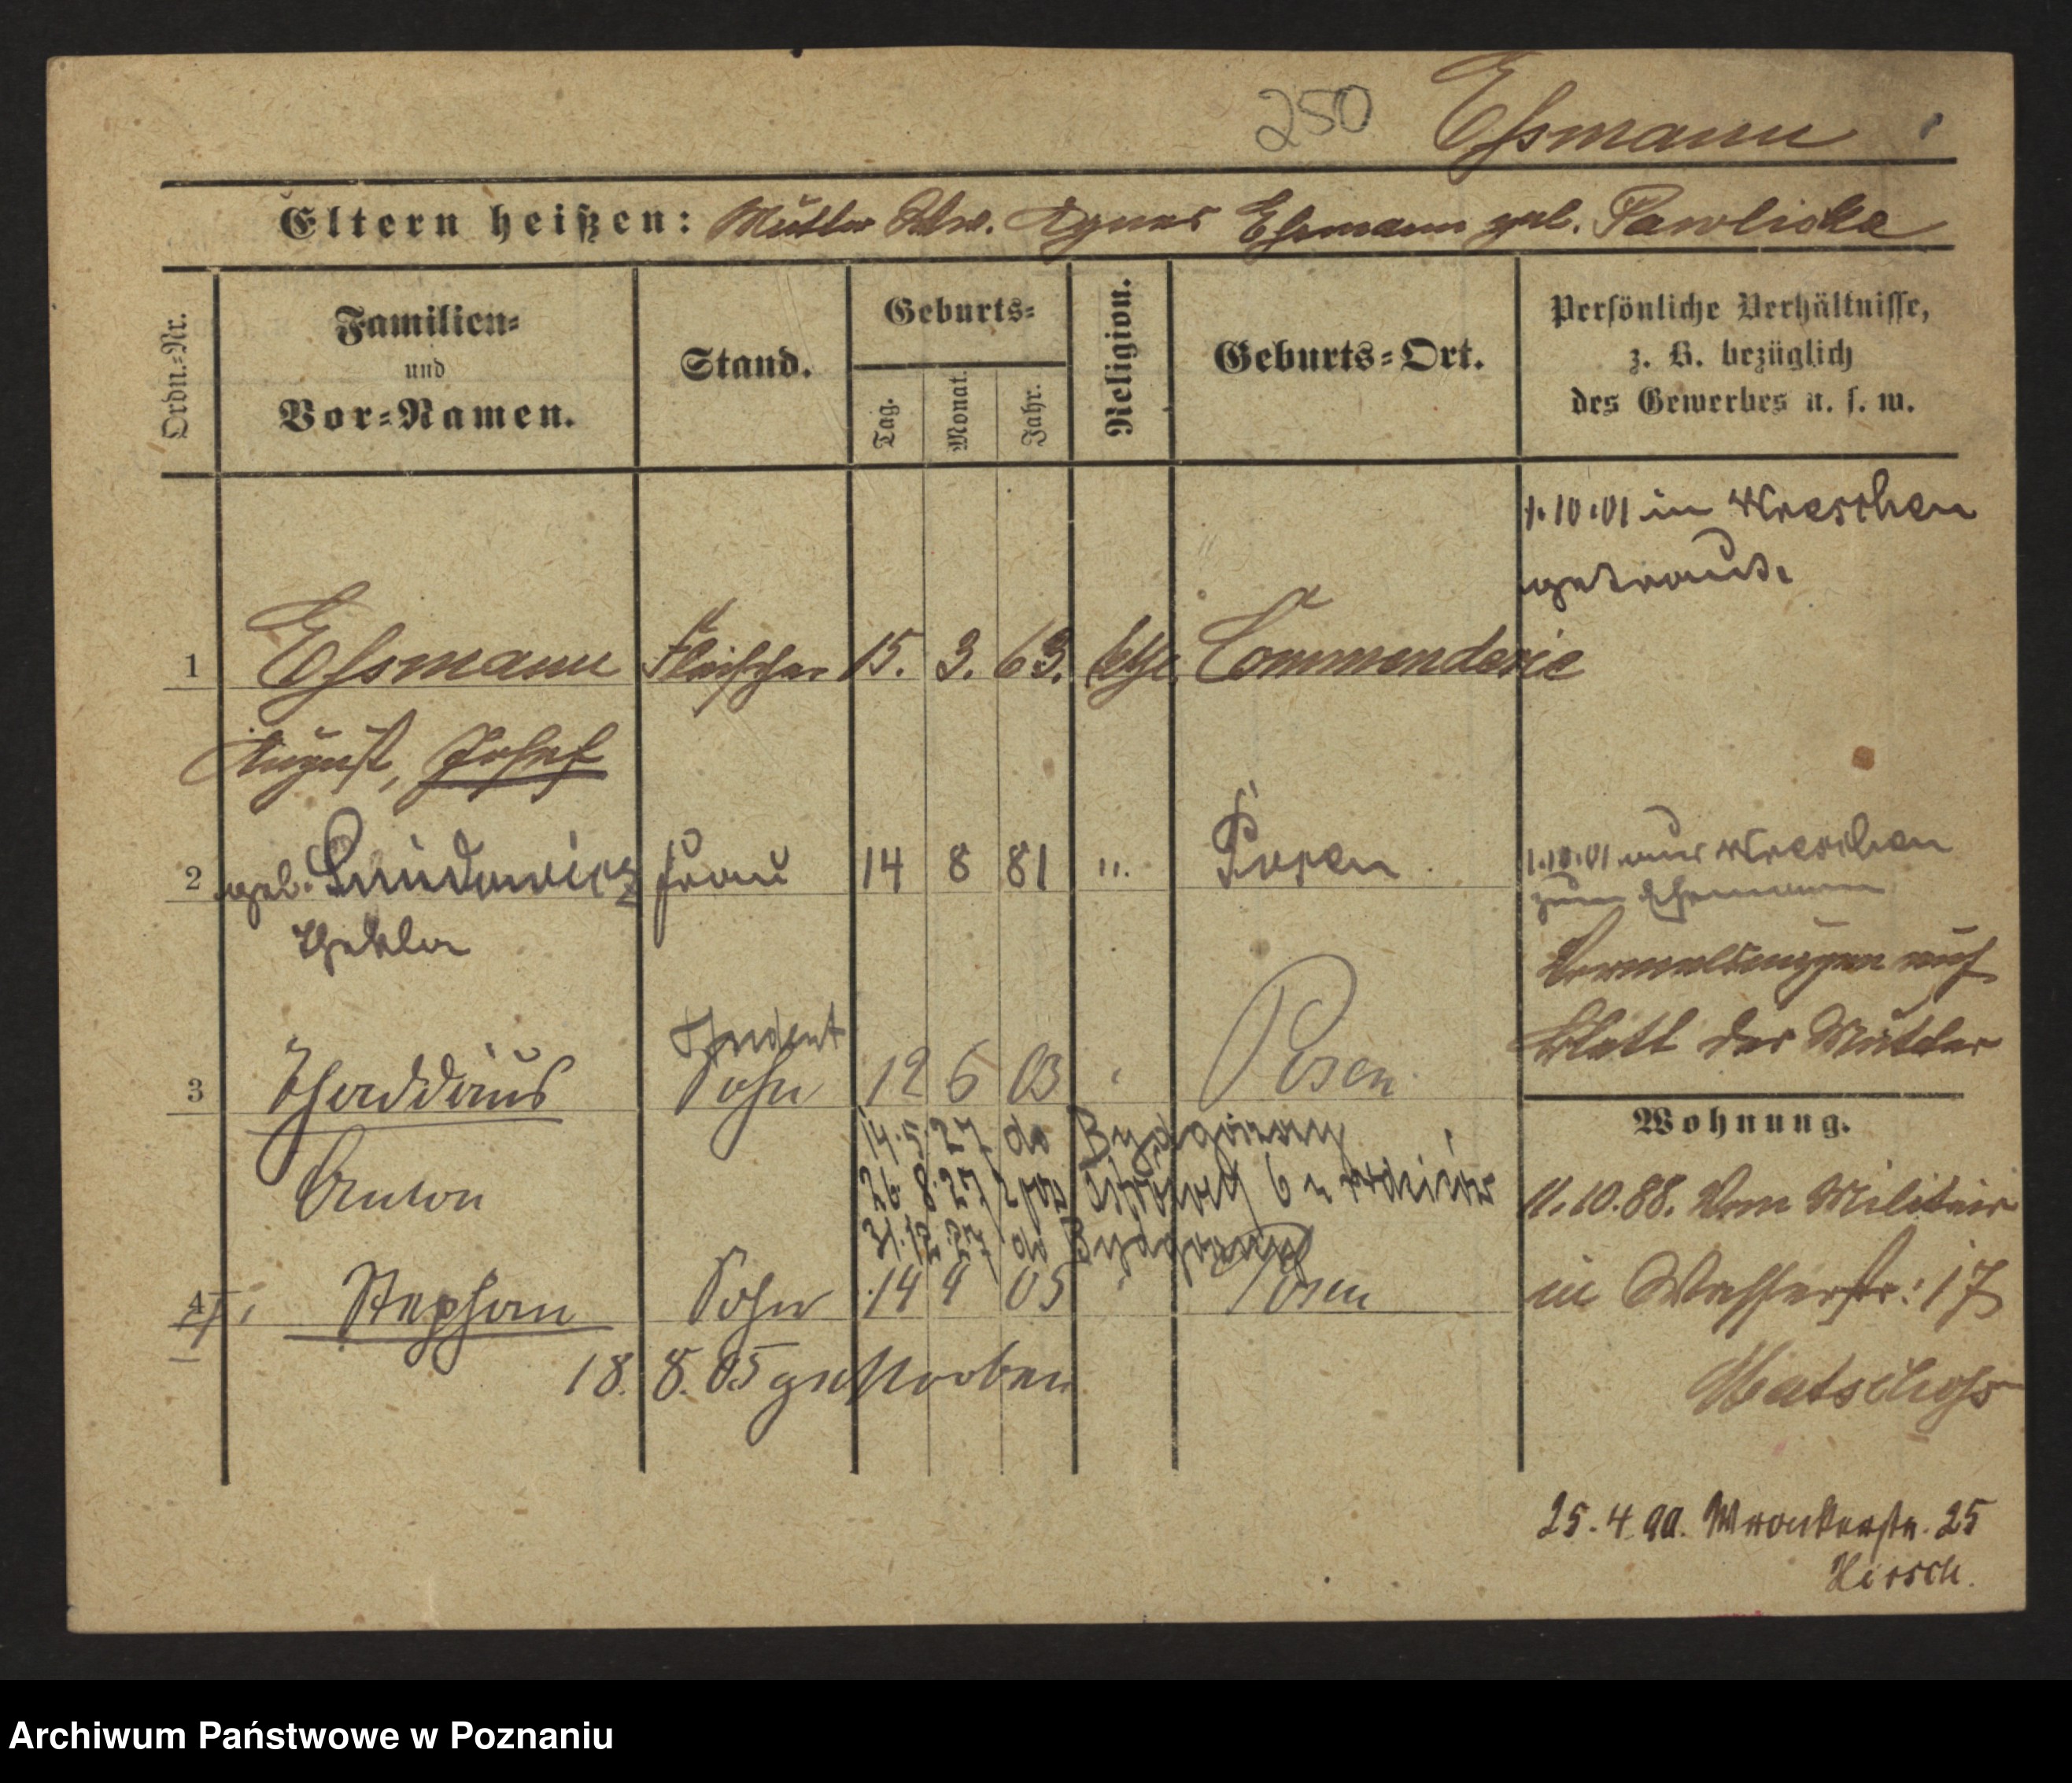 250 Eſsmann
Eltern heißen: Mutter Ww. Agnes Eſsmann geb. Pawlicka
Ordn.-Nr.
Familien-
und
Vor-Namen.
Stand.
Geburts-
Tag.
Monat.
Jahr.
Religion.
Geburts-Ort.
Persönliche Verhältnisse,
z. B. bezüglich
des Gewerbes u. s. w.
1.10.01 in Wreschen
getraut.
1 Eſsmann Fleischer 15. 3. 63. kth. Commenderie
August, Josef
2 geb. Frau 14 8 81 ". Posen
Thekla
1.10.01 aus Wreschen
zum Ehemann
Vermeldungen auf
Blatt der Mutter
Student
3 Thaddäus Sohn 12 6 03 " Posen
Anton
14.5.27 do Bydgoszczy
26.8.27 z pow. 6 u rodziców
31.12.27 do Bydgoszczy
4 Stephan Sohn 14 4 05 " Posen
18. 8. 05 gestorben
Wohnung.
11.10.88. Vom Militair
in Wasserstr: 17
Matschoſs
25.4.90. Wronkerstr. 25
Hirsch.
Archiwum Państwowe w Poznaniu